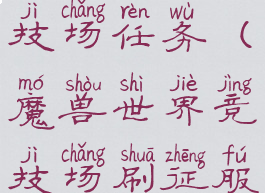 jì chǎng rèn wù
技场任务（
mó shòu shì jiè jìng
魔兽世界竞
jì chǎng shuā zhēng fú
技场刷征服